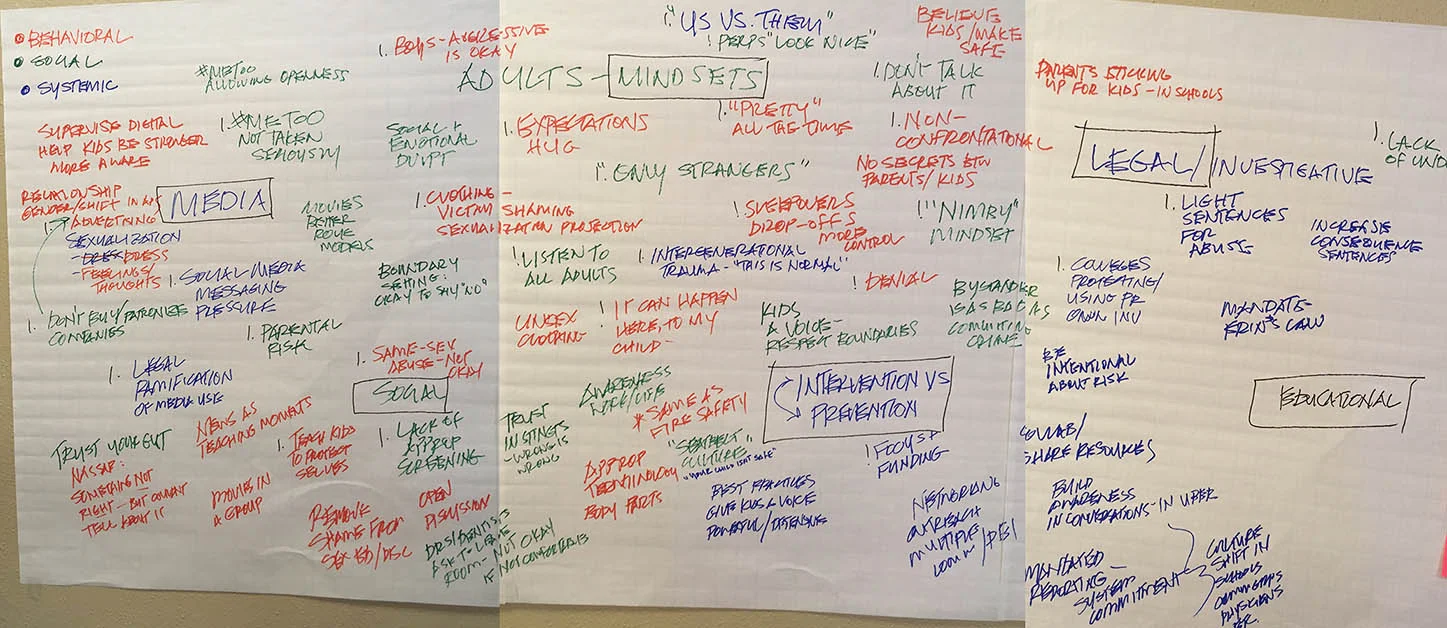 • BEHAVIORAL
• SOCIAL
• SYSTEMIC
#METOO
ALLOWING OPENNESS
!. BOYS-AGGRESSIVE
IS OKAY
SUPERVISE DIGITAL
HELP KIDS BE STRONGER
MORE AWARE
!. #METOO
NOT TAKEN
SERIOUSLY
SOCIAL +
EMOTIONAL
DVPT
RELATIONSHIP
GENDER/SHIFT IN
!. ADVERTISING
SEXUALIZATION
- DRESS
- FEELINGS/
THOUGHTS
MEDIA
MOVIES
BETTER
ROLE
MODELS
!. SOCIAL/MEDIA
MESSAGING
PRESSURE
BOUNDARY
SETTING:
OKAY TO SAY "NO"
!. DON'T BUY/PATRONIZE
COMPANIES
!. PARENTAL
RISK
!. LEGAL
RAMIFICATION
OF MEDIA USE
!. SAME-SEX
ABUSE-NOT
OKAY
SOCIAL
TRUST YOUR GUT
NASSAR:
SOMETHING NOT
RIGHT-BUT COULDN'T
TELL ABOUT IT
NEWS AS
TEACHING MOMENTS
MOVIES IN
A GROUP
!. TEACH KIDS
TO PROTECT
SELVES
!. LACK OF
APPROP
SCREENING
REMOVE
SHAME FROM
SEX ED/DISC
OPEN
DISCUSSION
DRS/DENTISTS
ASK TO LEAVE
ROOM-NOT OKAY
IF NOT COMFORTABLE
!. "US VS. THEM"
! PERPS "LOOK NICE"
BELIEVE
KIDS/MAKE
SAFE
ADULTS - MINDSETS
! DON'T TALK
ABOUT IT
!. EXPECTATIONS
HUG
!. "PRETTY"
ALL THE TIME
!. NON-
CONFRONTATIONAL
NO SECRETS BTW
PARENTS/KIDS
!. "ONLY STRANGERS"
!. CLOTHING -
VICTIM SHAMING
SEXUALIZATION PROJECTION
! SLEEPOVERS
DROP-OFFS
MORE
CONTROL
! "NIMBY"
MINDSET
! LISTEN TO
ALL ADULTS
!. INTERGENERATIONAL
TRAUMA-"THIS IS NORMAL"
! DENIAL
UNISEX
CLOTHING
! IT CAN HAPPEN
HERE, TO MY
CHILD-
KIDS
A VOICE-
RESPECT BOUNDARIES
BYSTANDER
IS AS BAD AS
COMMITTING
CRIME
TRUST
INSTINCTS
-WRONG IS
WRONG
AWARENESS
WORK/LIFE
* SAME AS
FIRE SAFETY
"SEATBELT"
CULTURE
"YOUR CHILD ISN'T SAFE"
APPROP
TERMINOLOGY
BODY PARTS
INTERVENTION VS
PREVENTION
! FOCUS +
FUNDING
BEST PRACTICES
GIVE KIDS A VOICE
POWERFUL/DEFENSIVE
NETWORKING
OUTREACH
MULTIPLE
PARENTS STICKING
UP FOR KIDS-IN SCHOOLS
LEGAL/INVESTIGATIVE
!. LACK
OF UND
!. LIGHT
SENTENCES
FOR
ABUSE
INCREASE
CONSEQUENCE
SENTENCES
!. COLLEGES
PROTECTING/
USING PR
OWN INV
MANDATE
ERIN'S LAW
BE
INTENTIONAL
ABOUT RISK
EDUCATIONAL
COLLAB/
SHARE RESOURCES
BUILD
AWARENESS
IN CONVERSATIONS-IN UBER
MANDATED
REPORTING-
SYSTEM
COMMITMENT
CULTURE
SHIFT IN
SCHOOLS
PHYSICIANS